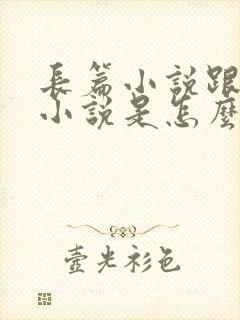 長篇小說跟
小說是怎麼
壺光衫色